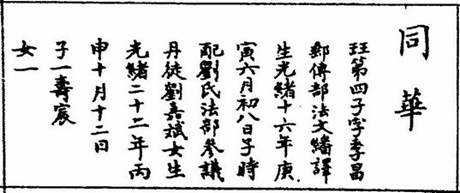 同華
珏第四子字季昌
郵傳部法文繙譯
生光緒十六年庚
寅六月初八日子時
配劉氏法部參議
丹徒劉嘉斌女生
光緒二十二年丙
申十月十二日
子一壽宸
女一